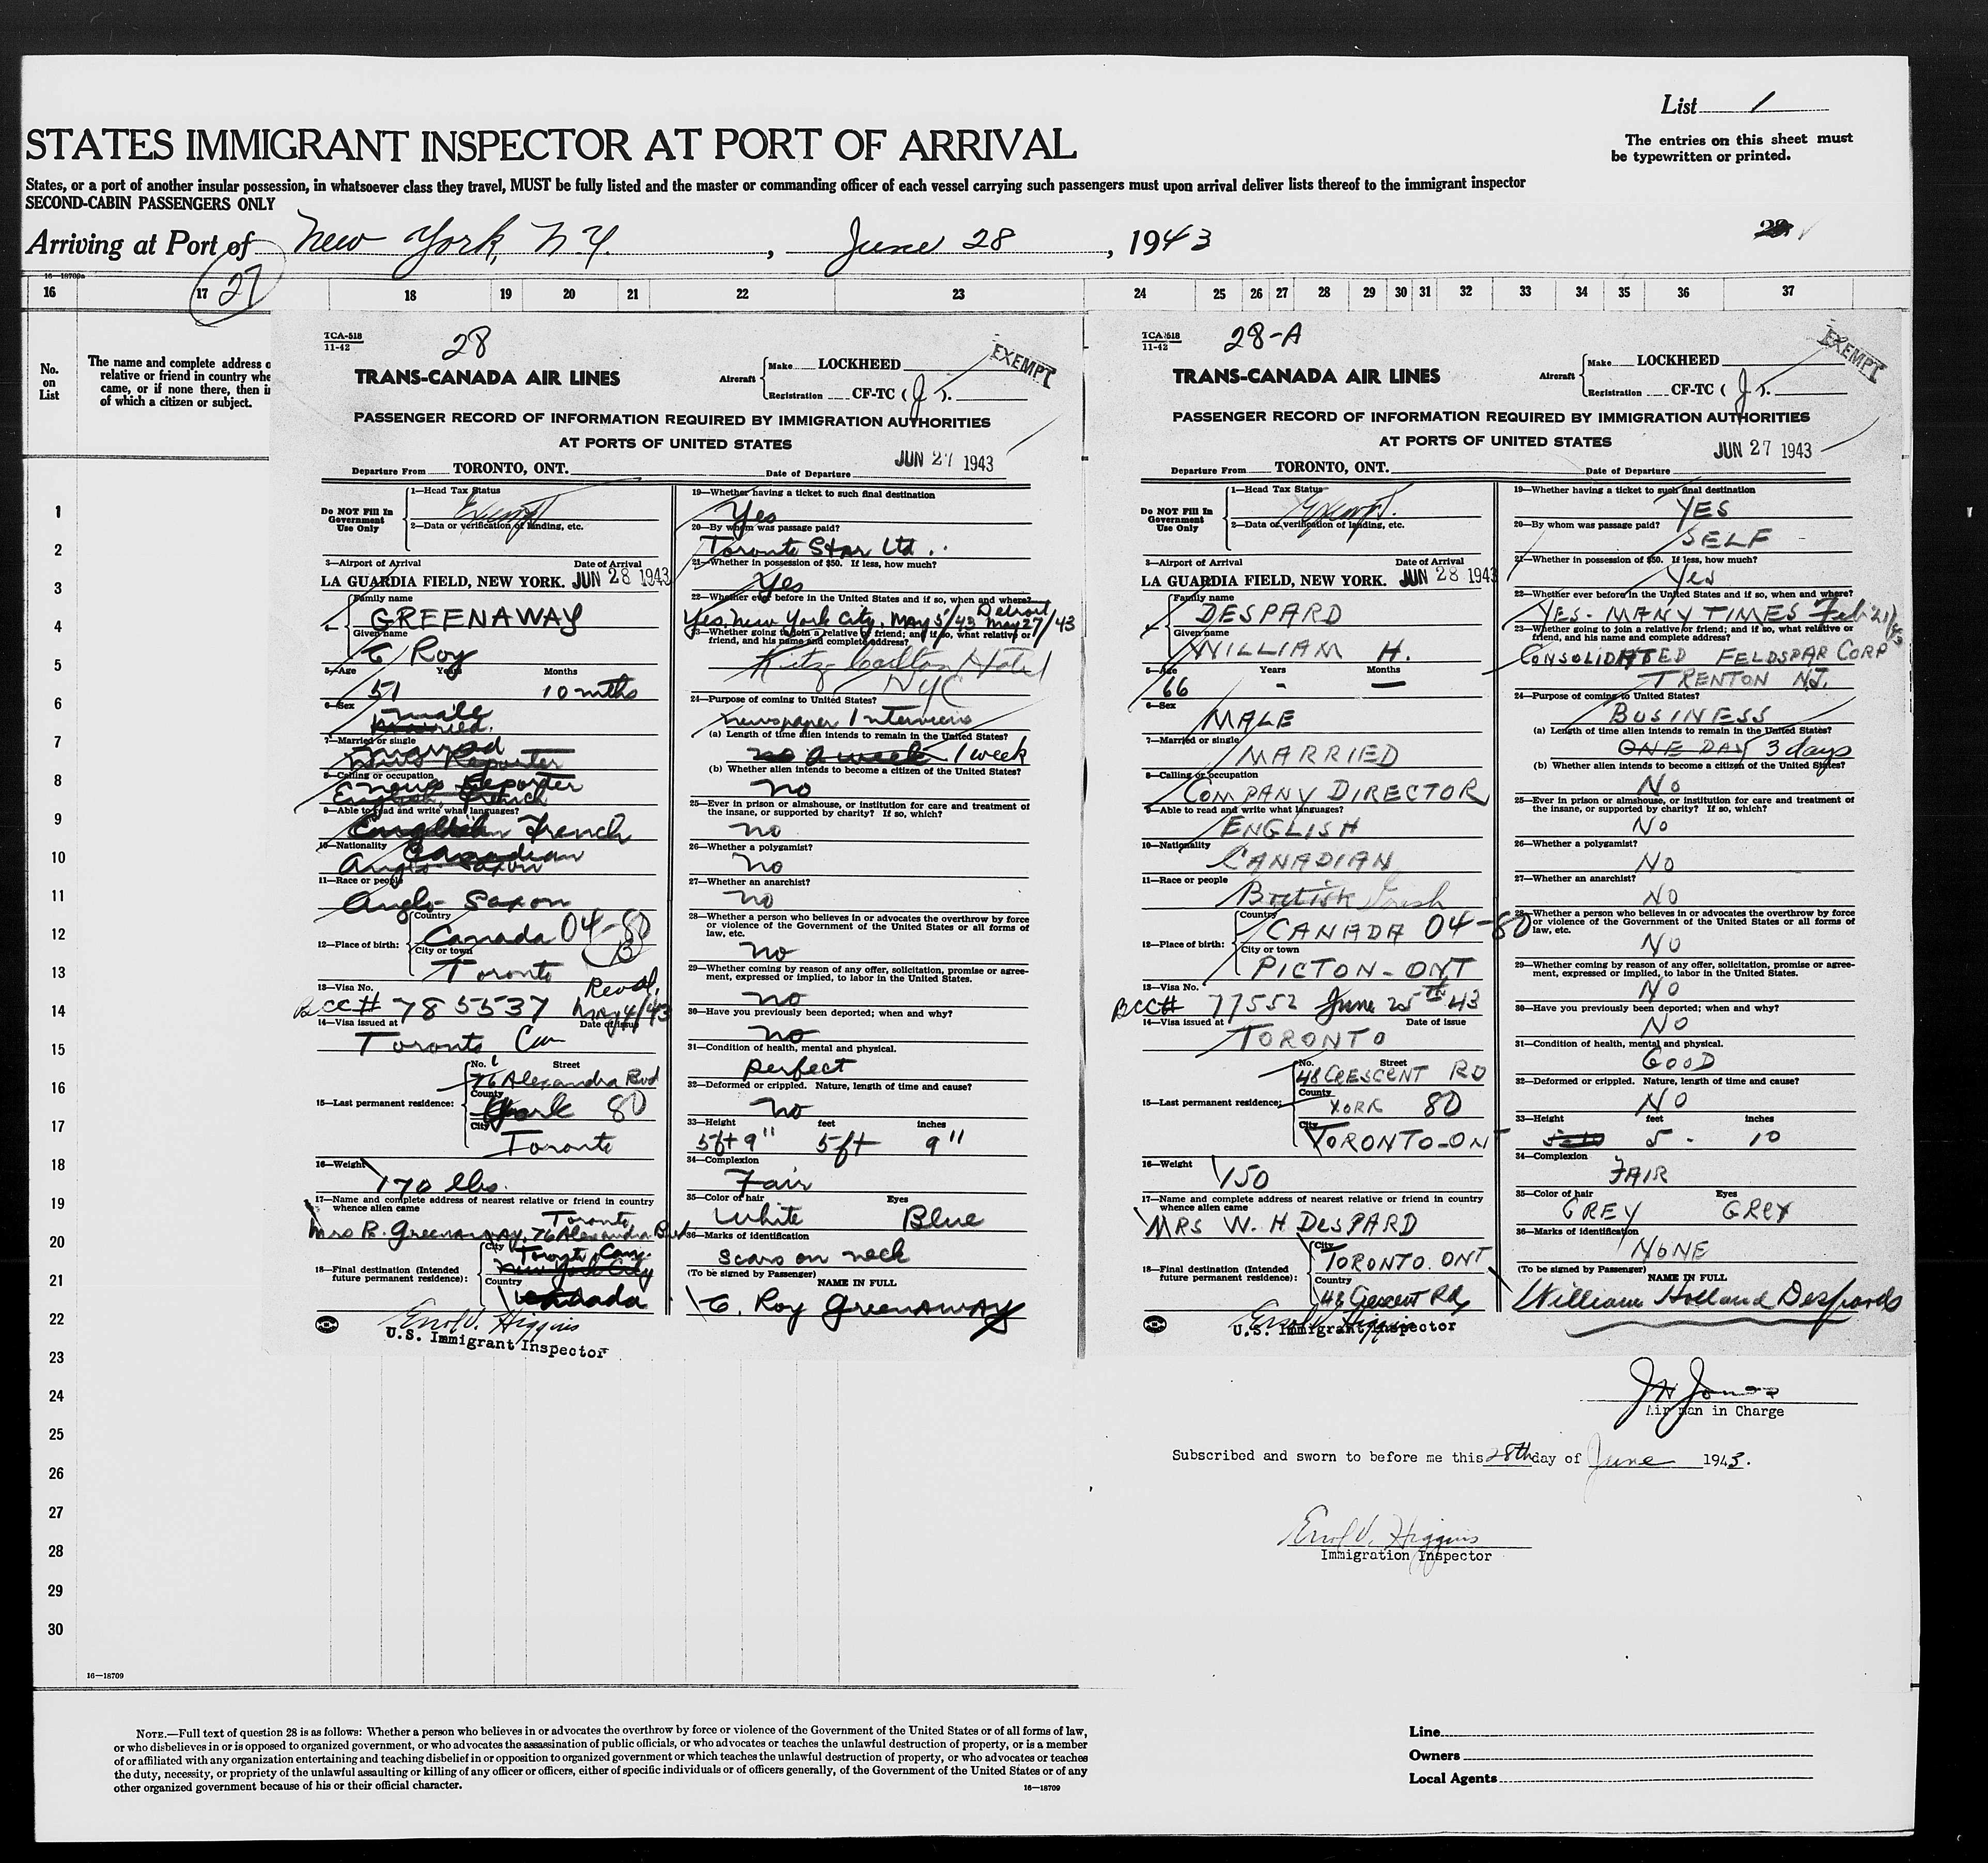 List 1
STATES IMMIGRANT INSPECTOR AT PORT OF ARRIVAL
The entries on this sheet must
be typewritten or printed.
States, or a port of another insular possession, in whatsoever class they travel, MUST be fully listed and the master or commanding officer of each vessel carrying such passengers must upon arrival deliver lists thereof to the immigrant inspector
SECOND-CABIN PASSENGERS ONLY
Arriving at Port of New York, N.Y. , June 28 , 1943
16—18709a
27
16 17 18 19 20 21 22 23 24 25 26 27 28 29 30 31 32 33 34 35 36 37
No.
on
List
The name and complete address o
relative or friend in country whe
came, or if none there, then i
of which a citizen or subject.
1
2
3
4
5
6
7
8
9
10
11
12
13
14
15
16
17
18
19
20
21
22
23
24
25
26
27
28
29
30
TCA-518
11-42
28
TRANS-CANADA AIR LINES
Aircraft
Make LOCKHEED
Registration CF-TC ( J ).
EXEMPT
PASSENGER RECORD OF INFORMATION REQUIRED BY IMMIGRATION AUTHORITIES
AT PORTS OF UNITED STATES
Departure From TORONTO, ONT. Date of Departure JUN 27 1943
Do NOT Fill In
Government
Use Only
1—Head Tax Status
Exempt
2—Data or verification of landing, etc.
3—Airport of Arrival Date of Arrival
LA GUARDIA FIELD, NEW YORK. JUN 28 1943
Family name
GREENAWAY
Given name
C Roy
5—Age Years Months
51 10 mths
6—Sex
male
married.
7—Married or single
married
News Reporter
8—Calling or occupation
news reporter
English, French
9—Able to read and write what languages?
English French
10—Nationality
Canadian
Anglo-Saxon
11—Race or people
Anglo-Saxon
12—Place of birth:
Country
Canada 04-80
City or town
Toronto
13—Visa No.
BCC# 785537 Reval. May 4/43
14—Visa issued at Date of issue
Toronto Can
15—Last permanent residence:
No. Street
76 Alexandra Blvd
County
York 80
City
Toronto
16—Weight
170 lbs.
17—Name and complete address of nearest relative or friend in country
whence alien came
Toronto
Mrs R. Greenaway, 76 Alexandra Blvd
18—Final destination (Intended
future permanent residence):
City
Toronto, Can.
New York City
Country
Canada
Errol V. Higgins
U.S. Immigrant Inspector
19—Whether having a ticket to such final destination
Yes
20—By whom was passage paid?
Toronto Star Ltd..
21—Whether in possession of $50. If less, how much?
Yes
22—Whether ever before in the United States and if so, when and where?
Yes, New York City, May 5/43 Detroit May 27/43
23—Whether going to join a relative or friend; and if so, what relative or
friend, and his name and complete address?
Ritz Carlton Hotel
NYC
24—Purpose of coming to United States?
newspaper Interviews
(a) Length of time alien intends to remain in the United States?
a week 1 week
(b) Whether alien intends to become a citizen of the United States?
no
25—Ever in prison or almshouse, or institution for care and treatment of
the insane, or supported by charity? If so, which?
no
26—Whether a polygamist?
no
27—Whether an anarchist?
no
28—Whether a person who believes in or advocates the overthrow by force
or violence of the Government of the United States or all forms of
law, etc.
no
29—Whether coming by reason of any offer, solicitation, promise or agree-
ment, expressed or implied, to labor in the United States.
no
30—Have you previously been deported; when and why?
no
31—Condition of health, mental and physical.
perfect
32—Deformed or crippled. Nature, length of time and cause?
no
33—Height feet inches
5ft 9" 5ft 9"
34—Complexion
Fair
35—Color of hair Eyes
White Blue
36—Marks of identification
scars on neck
(To be signed by Passenger) NAME IN FULL
C. Roy Greenaway
TCA-518
11-42
28-A
TRANS-CANADA AIR LINES
Aircraft
Make LOCKHEED
Registration CF-TC ( J ).
EXEMPT
PASSENGER RECORD OF INFORMATION REQUIRED BY IMMIGRATION AUTHORITIES
AT PORTS OF UNITED STATES
Departure From TORONTO, ONT. Date of Departure JUN 27 1943
Do NOT Fill In
Government
Use Only
1—Head Tax Status
Exempt.
2—Data or verification of landing, etc.
3—Airport of Arrival Date of Arrival
LA GUARDIA FIELD, NEW YORK. JUN 28 1943
Family name
DESPARD
Given name
WILLIAM H.
5—Age Years Months
66 - —
6—Sex
MALE
7—Married or single
MARRIED
8—Calling or occupation
COMPANY DIRECTOR
9—Able to read and write what languages?
ENGLISH
10—Nationality
CANADIAN
11—Race or people
British Irish
12—Place of birth:
Country
CANADA 04-80
City or town
PICTON-ONT
13—Visa No.
BCC# 77552 June 25th 43
14—Visa issued at Date of issue
TORONTO
15—Last permanent residence:
No. Street
48 CRESCENT RD
County
YORK 80
City
TORONTO-ONT
16—Weight
150
17—Name and complete address of nearest relative or friend in country
whence alien came
MRS W. H DESPARD
18—Final destination (Intended
future permanent residence):
City
TORONTO. ONT
Country
48 Crescent Rd,
Errol V. Higgins
U.S. Immigrant Inspector
19—Whether having a ticket to such final destination
YES
20—By whom was passage paid?
SELF
21—Whether in possession of $50. If less, how much?
Yes
22—Whether ever before in the United States and if so, when and where?
YES - MANY TIMES Feb 21/43
23—Whether going to join a relative or friend; and if so, what relative or
friend, and his name and complete address?
CONSOLIDATED FELDSPAR CORP
TRENTON NJ.
24—Purpose of coming to United States?
BUSINESS
(a) Length of time alien intends to remain in the United States?
ONE DAY 3 days
(b) Whether alien intends to become a citizen of the United States?
No
25—Ever in prison or almshouse, or institution for care and treatment of
the insane, or supported by charity? If so, which?
NO
26—Whether a polygamist?
NO
27—Whether an anarchist?
NO
28—Whether a person who believes in or advocates the overthrow by force
or violence of the Government of the United States or all forms of
law, etc.
NO
29—Whether coming by reason of any offer, solicitation, promise or agree-
ment, expressed or implied, to labor in the United States.
NO
30—Have you previously been deported; when and why?
NO
31—Condition of health, mental and physical.
GOOD
32—Deformed or crippled. Nature, length of time and cause?
NO
33—Height feet inches
5-10 5 - 10
34—Complexion
FAIR
35—Color of hair Eyes
GREY GREY
36—Marks of identification
NONE
(To be signed by Passenger) NAME IN FULL
William Holland Despard
J H Jones
Airman in Charge
Subscribed and sworn to before me this 28th day of June 1943.
Errol V. Higgins
Immigration Inspector
16—18709
NOTE.—Full text of question 28 is as follows: Whether a person who believes in or advocates the overthrow by force or violence of the Government of the United States or of all forms of law,
or who disbelieves in or is opposed to organized government, or who advocates the assassination of public officials, or who advocates or teaches the unlawful destruction of property, or is a member
of or affiliated with any organization entertaining and teaching disbelief in or opposition to organized government or which teaches the unlawful destruction of property, or who advocates or teaches
the duty, necessity, or propriety of the unlawful assaulting or killing of any officer or officers, either of specific individuals or of officers generally, of the Government of the United States or of any
other organized government because of his or their official character.
16—18709
Line
Owners
Local Agents